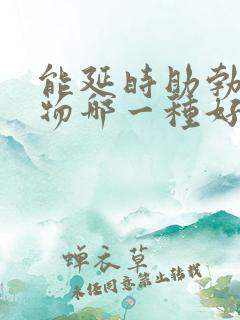 能延時助勃
物哪一種好
蟬衣草
未經同意禁止轉載